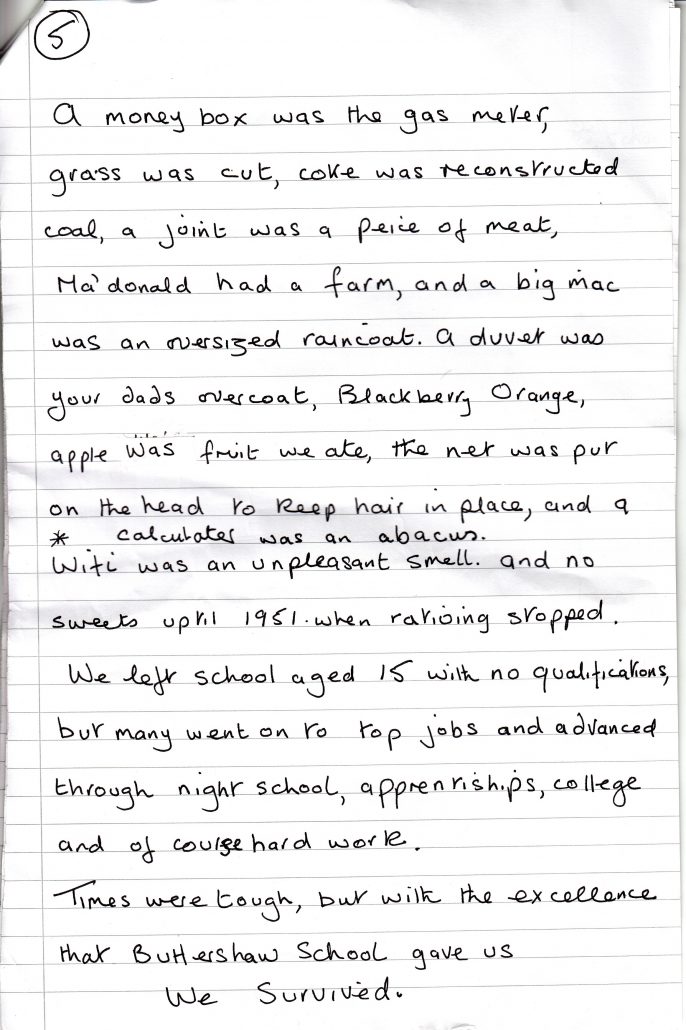 5
A money box was the gas meter,
grass was cut, coke was reconstructed
coal, a joint was a peice of meat,
Ma'donald had a farm, and a big mac
was an oversized raincoat. A duvet was
your dads overcoat, Blackberry Orange,
apple was fruit we ate, the net was put
on the head to keep hair in place, and a
* calculater was an abacus.
Wifi was an unpleasant smell. and no
sweets uptil 1951. when rationing stopped.
We left school aged 15 with no qualifications,
but many went on to top jobs and advanced
through night school, apprentiships, college
and of course hard work.
Times were tough, but with the excellence
that Buttershaw School gave us
We Survived.